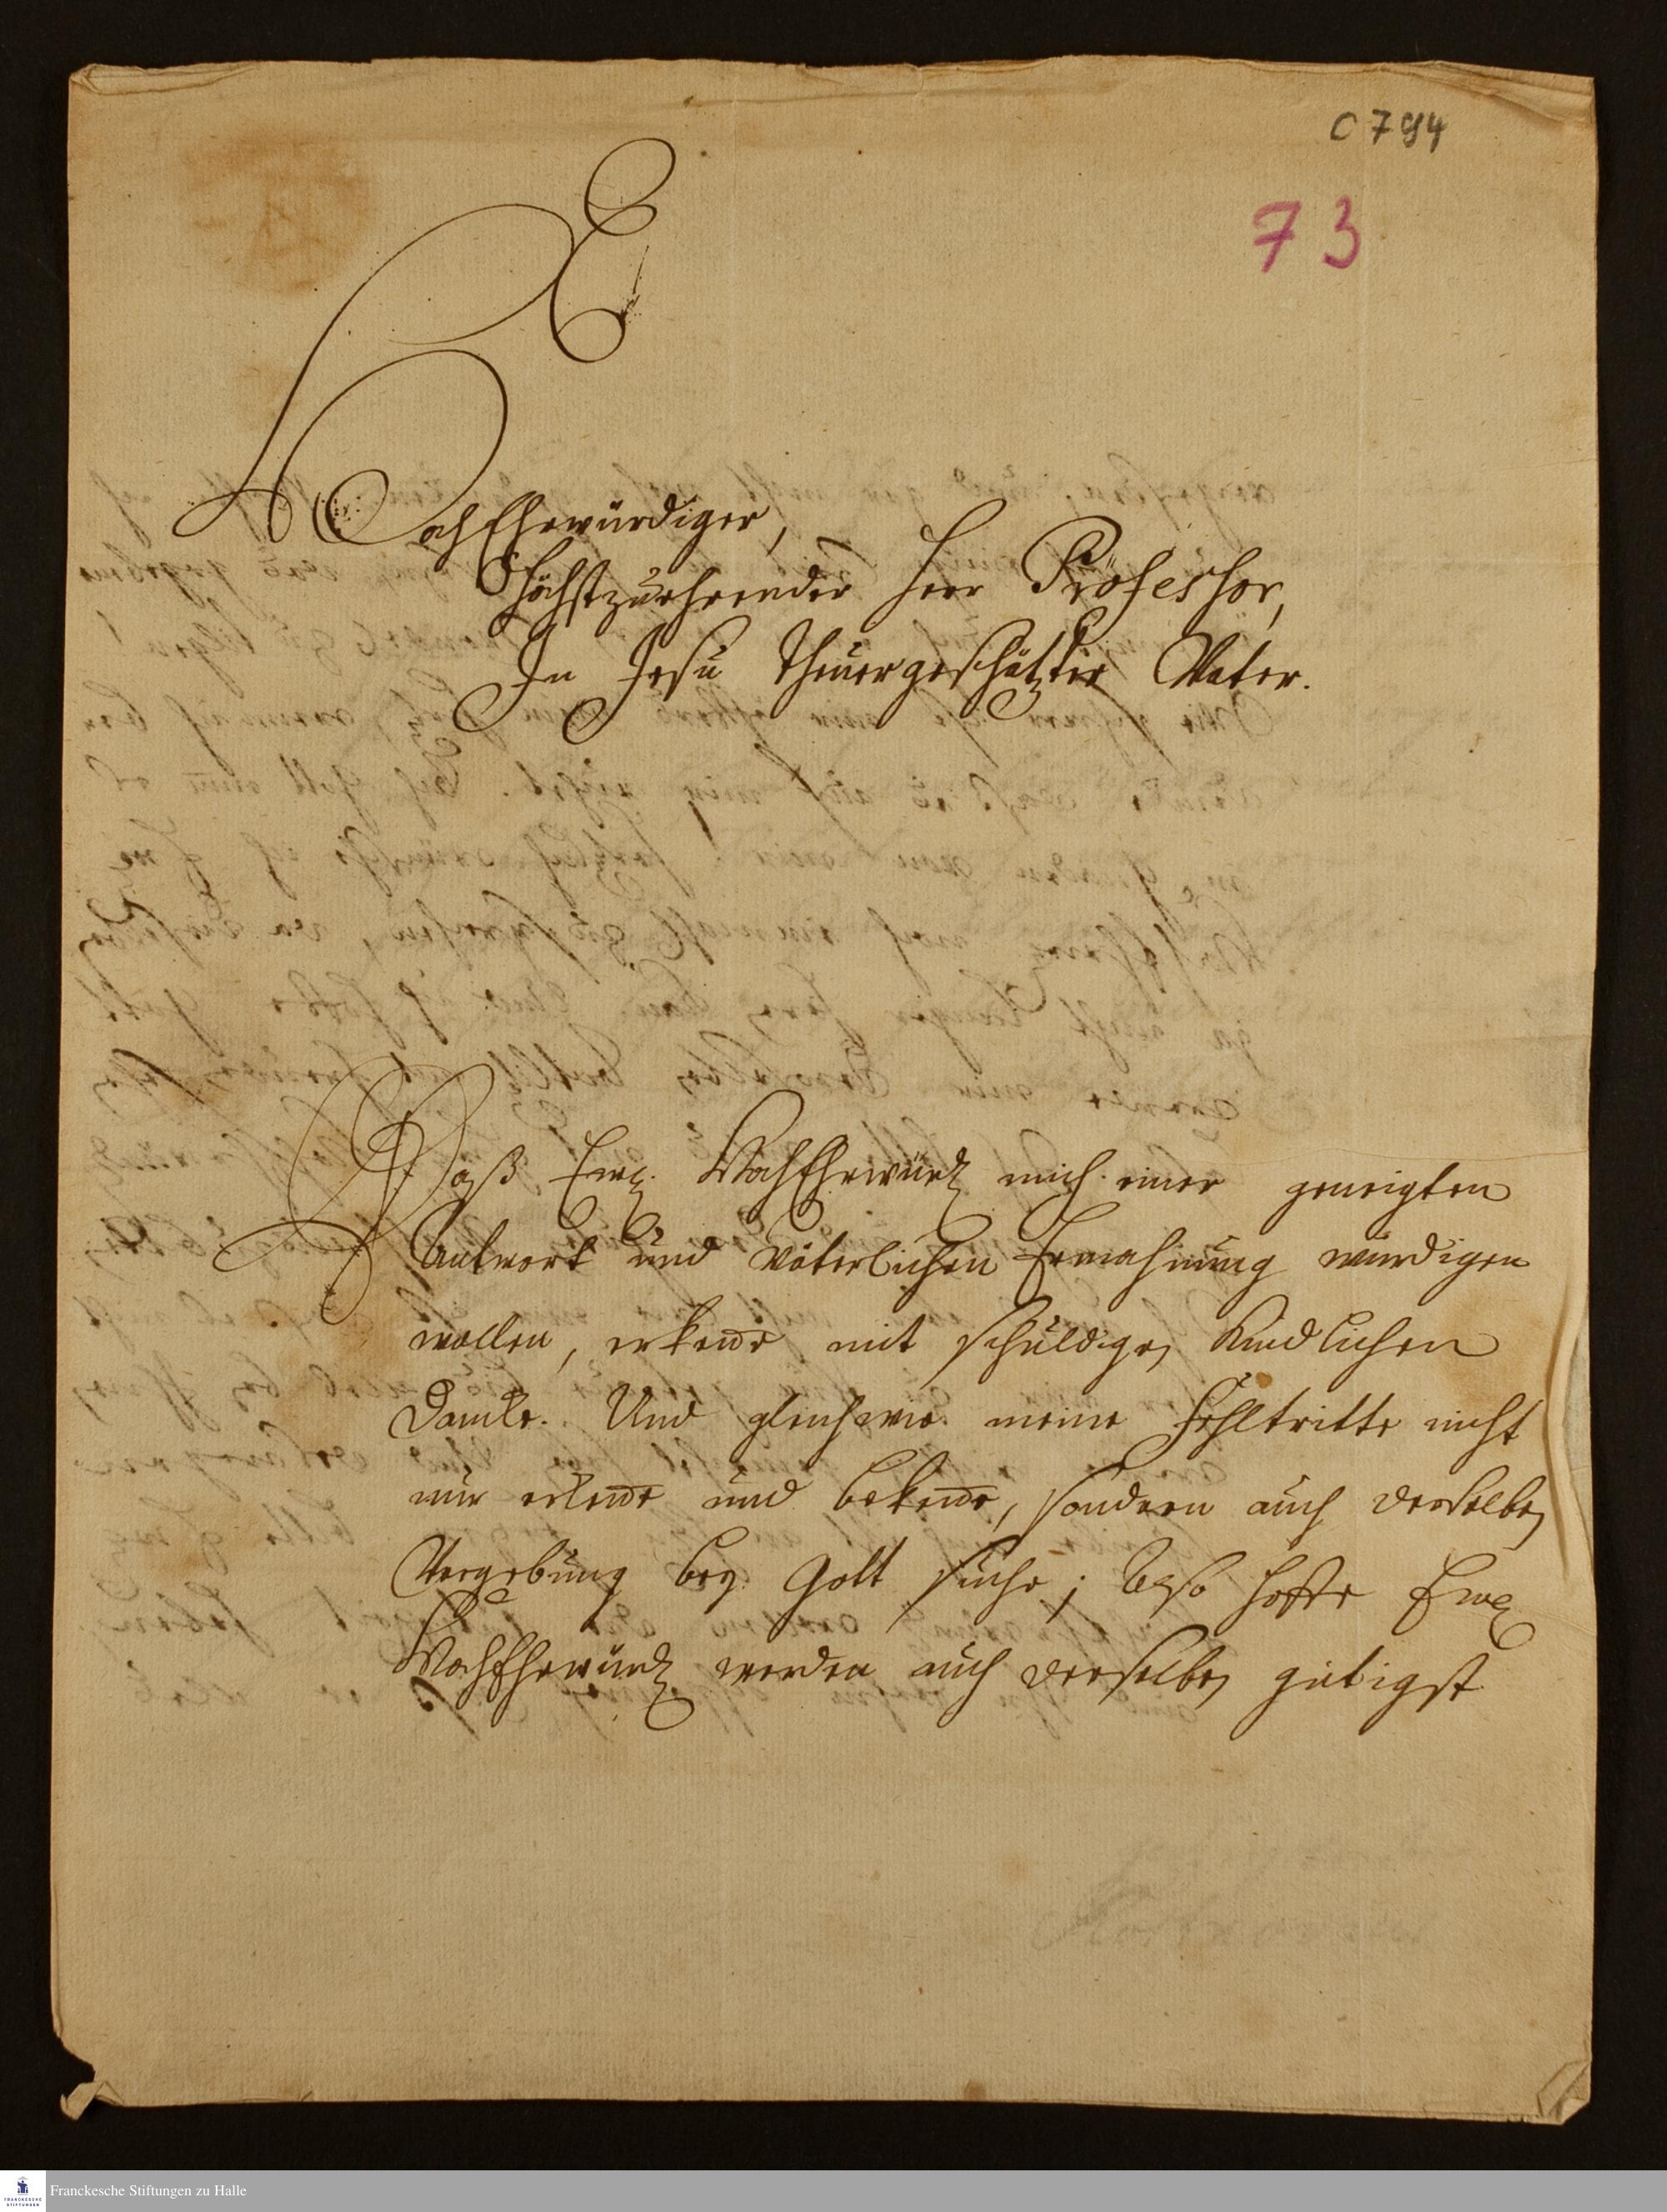 C 794
73
HochEhrwürdiger,
Höchstzuehrender Herr Professor,
In Jesu theuergeschätzter Vater.
Daß Ew. HochEhrwürd mich einer geneigten
Antwort und väterlichen Ermahnung würdigen
wollen, erkenne mit schuldigen kindlichen
Dancke. Und gleichwie meine Fehltritte nicht
nur erkenne und bekenne, sondern auch derselben
Vergebung bey Gott suche; also hoffe Ew.
HochEhrwürd werden auch derselben gütigst
Franckesche Stiftungen zu Halle
FRANCKESCHE
STIFTUNGEN